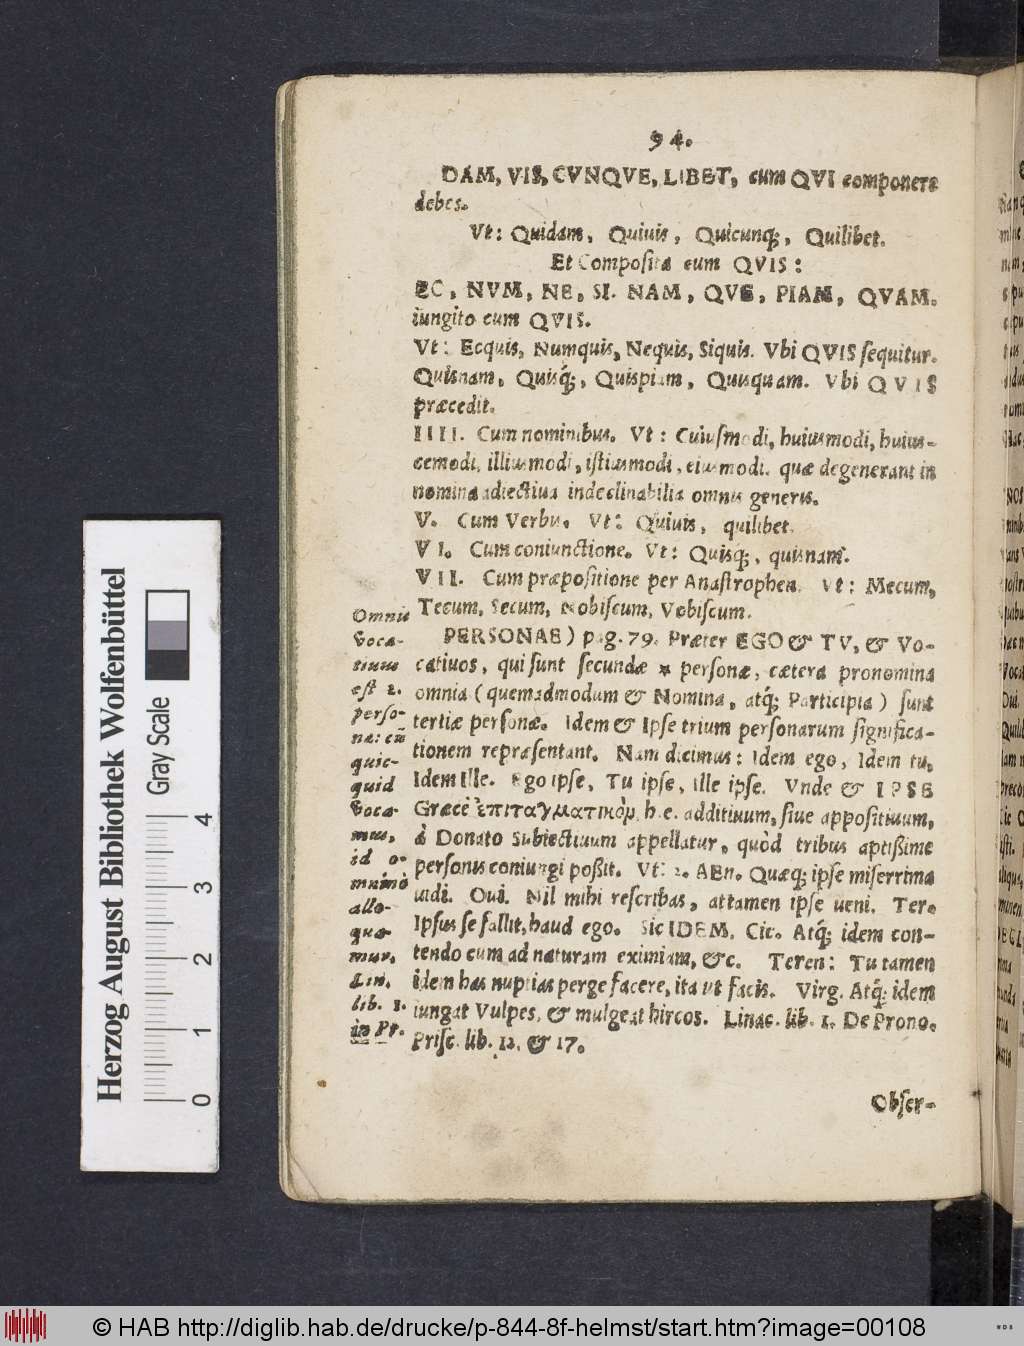 94.
DAM, VIS, CVNQVE, LIBET, cum QVI componere
debes.
Vt: Quidam, Quiuis, Quicunq;, Quilibet.
Et Composita cum QVIS:
EC, NVM, NE, SI. NAM, QVE, PIAM, QVAM.
iungito cum QVIS.
Vt: Ecquis, Numquis, Nequis, Siquis. Vbi QVIS sequitur.
Quisnam, Quisq́;, Quispiam, Quisquam. Vbi QVIS
præcedit.
IIII. Cum nominibus. Vt: Cuiusmodi, huiusmodi, huius-
cemodi, illiusmodi, istiusmodi, eiusmodi. quæ degenerant in
nomina adiectiua indeclinabilia omnis generis.
V. Cum Verbis. Vt: Quiuis, quilibet.
VI. Cum coniunctione. Vt: Quisq́;, quisnam.
VII. Cum præpositione per Anastrophen. vt: Mecum,
Tecum, Secum, Nobiscum, Vobiscum.
PERSONAE) pag. 79. Præter EGO & TV, & Vo-
catiuos, qui sunt secundæ * personæ, cætera pronomina
omnia (quemadmodum & Nomina, atq́; Participia) sunt
tertiæ personæ. Idem & Ipse trium personarum significa-
tionem repræsentant. Nam dicimus: Idem ego, Idem tu,
Idem Ille. Ego ipse, Tu ipse, Ille ipse. Vnde & IPSE
Græcè ἐπιταγματικὸμ h.e. additiuum, siue appositiuum,
à Donato Subiectiuum appellatur, quòd tribus aptißime
personis coniungi poßit. Vt: 2. AEn. Quæq; ipse miserrima
uidi. Oui. Nil mihi rescribas, attamen ipse ueni. Ter.
Ipsus se fallit, haud ego. Sic IDEM. Cic. Atq́; idem con-
tendo cum ad naturam eximiam, &c. Teren: Tu tamen
idem has nuptias perge facere, ita ut facis. Virg. Atq́; idem
iungat Vulpes, & mulgeat hircos. Linac. lib. 1. De Prono.
Prisc. lib. 12. & 17.
Obser-
Omnis
Voca-
tiuus
est 2.
perso-
næ: cũ
quic-
quid
Voca-
mus,
id o-
mnino
allo-
qui-
mur.
Lin.
lib. 1.
in Pr.
Herzog August Bibliothek Wolfenbüttel
Gray Scale
0 1 2 3 4
© HAB http://diglib.hab.de/drucke/p-844-8f-helmst/start.htm?image=00108